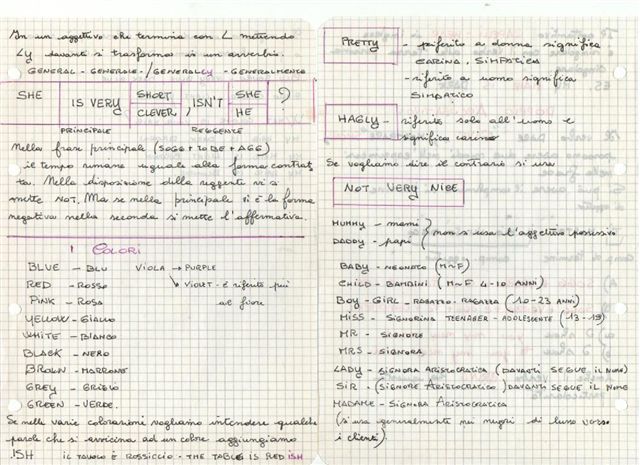 In un aggettivo che termina con L mettendo
Ly davanti si trasforma in un avverbio.
GENERAL - GENERALE - / GENERALLY - GENERALMENTE
SHE IS VERY SHORT CLEVER, ISN'T SHE HE ?
PRINCIPALE REGGENCE
Nella frase principale (SOGG + TO BE + AGG)
il tempo rimane uguale alla forma contrat
ta. Nella disposizione della reggente vi si
mette NOT. Ma se nella principale vi è la forma
negativa nella seconda si mette l'affermativa.
I COLORI
BLUE - BLU VIOLA → PURPLE
RED - ROSSO VIOLET - è riferito più
PINK - ROSA al fiore
YELLOW - GIALLO
WHITE - BIANCO
BLACK - NERO
BROWN - MARRONE
GREY - GRIGIO
GREEN - VERDE.
Se nelle varie colorazioni vogliamo intendere qualche
parola che si avvicina ad un colore aggiungiamo
.ISH IL TAVOLO È ROSSICCIO - THE TABLE IS REDISH
PRETTY - riferito a donna significa
CARINA, SIMPATICA
- riferito a uomo significa
SIMPATICO
HAGLY - riferito solo all'uomo e
significa carino
Se vogliamo dire il contrario si usa
NOT VERY NICE
MUMMY - mami } non si usa l'aggettivo possessivo
DADDY - papi
BABY - NEONATO (M-F)
CHILD - BAMBINI (M-F 4-10 ANNI)
BOY - GIRL - RAGAZZO - RAGAZZA (10-23 ANNI)
MISS - SIGNORINA TEENAGER - ADOLESCENTE (13-19)
MR - SIGNORE
MRS - SIGNORA
LADY - SIGNORA ARISTOCRATICA (DAVANTI SEGUE IL NOME
SIR - (SIGNORE ARISTOCRATICO) DAVANTI SEGUE IL NOME
MADAME - SIGNORA ARISTOCRATICA
(si usa generalmente nei negozi di lusso verso
i clienti).